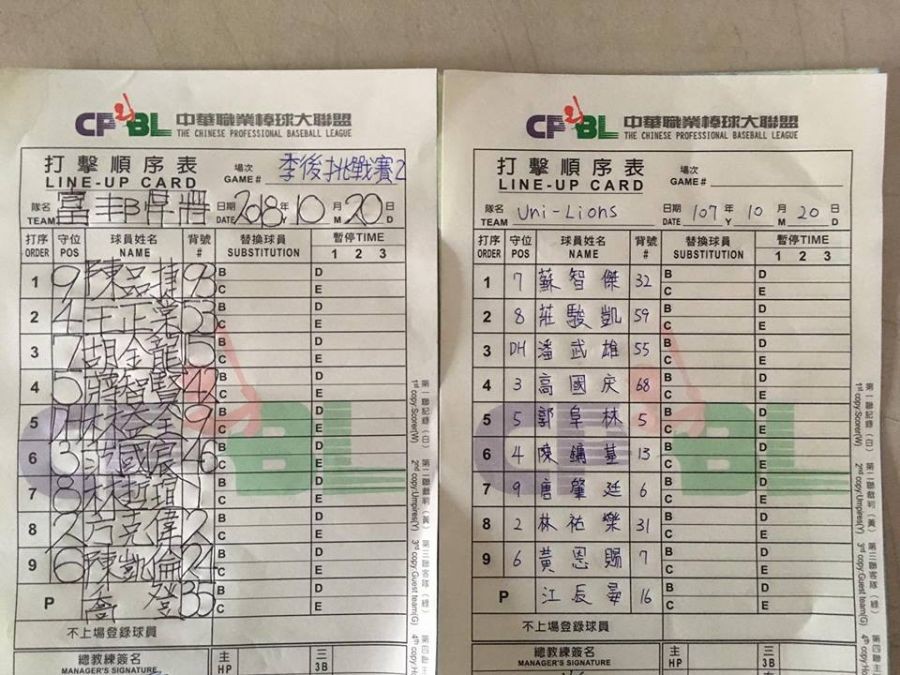 CPBL 中華職業棒球大聯盟
THE CHINESE PROFESSIONAL BASEBALL LEAGUE
打擊順序表
LINE-UP CARD
場次
GAME # 季後挑戰賽2
隊名
TEAM 富邦悍將
日期
DATE 2018 年 10 月 20 日
Y M D
打序 守位 球員姓名 背號 替換球員 暫停TIME
ORDER POS NAME # SUBSTITUTION 1 2 3
1 9 陳品捷 93 B D
C E
2 4 王正棠 53 B D
C E
3 7 胡金龍 15 B D
C E
4 5 蔣智賢 42 B D
C E
5 林益全 9 B D
C E
6 3 B D
C E
7 8 林哲瑄 B D
C E
8 2 方克偉 2 B D
C E
9 6 陳凱倫 24 B D
C E
P 登 35 B D
C E
不上場登錄球員
總教練簽名 主 三
MANAGER'S SIGNATURE HP 3B
第一聯記錄(白)
1st copy:Scorer(W)
第二聯裁判(黃)
2nd copy:Umpires(Y)
第三聯客隊(綠)
3rd copy:Guest team(G)
第四聯主
CPBL 中華職業棒球大聯盟
THE CHINESE PROFESSIONAL BASEBALL LEAGUE
打擊順序表
LINE-UP CARD
場次
GAME #
隊名
TEAM Uni-Lions
日期
DATE 107 年 10 月 20 日
Y M D
打序 守位 球員姓名 背號 替換球員 暫停TIME
ORDER POS NAME # SUBSTITUTION 1 2 3
1 7 蘇智傑 32 B D
C E
2 8 莊駿凱 59 B D
C E
3 DH 潘武雄 55 B D
C E
4 3 高國庆 68 B D
C E
5 5 郭阜林 5 B D
C E
6 4 陳鏞基 13 B D
C E
7 9 唐肇廷 6 B D
C E
8 2 林祐樂 31 B D
C E
9 6 黃恩賜 7 B D
C E
P 江辰晏 16 B D
C E
不上場登錄球員
總教練簽名 主 三
MANAGER'S SIGNATURE HP 3B
第一聯記錄(白)
1st copy:Scorer(W)
第二聯裁判(黃)
2nd copy:Umpires(Y)
第三聯客隊(綠)
3rd copy:Guest team(G)
第四聯主